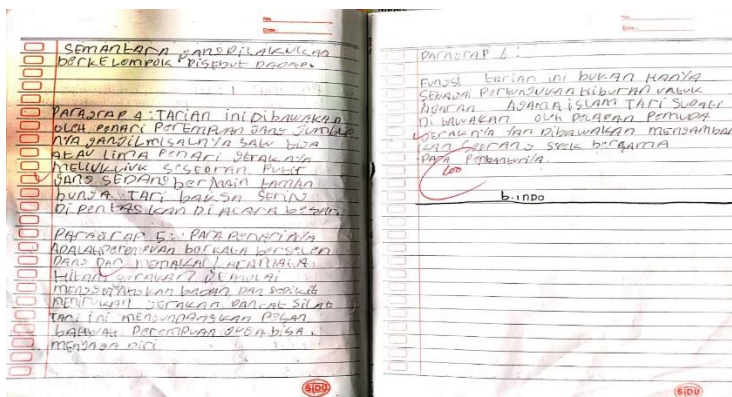 No.
Date :
SEMANtARA YANG DILAKUKAN
berkelompok disebut DADAP.
PARAGRAP 4 : TARIAN INI DIBAWAKAN
OLEH PENARI PEREMPUAN YANG JUMLAH
NYA GANJIL MISALNYA SATU tiga
ATAU LIMA PENARI GERAKNYA
MELIUK LIUK SESEORAN PUTRI
YANG SEDANG berMAIN tAMAN
bunga TARI bAKSA SERIN
DI PENTASKAN DI ACARA bESAR.
PARAGRAP 5 : PARA PENARINYA
ADALAH PEREMPUAN
DAN MEMAKAI
HITAM GERAKAN DEMULAI
BADAN DAN SEDIKIT
MENIRUKAN GERAKAN PANCAK SILAT
TARI INI MENGUNDANGKAN PESAN
bAHWAH PEREMPUAN JUGA bISA.
MENJAGA DIRI
SIDU
No.
Date :
PARAGRAP 6 :
FUNGSI tARIAN INI bUKAN HANYA
SEBAGAI PERTUNJUKAN HIBURAN UNTUK
AJARAN AGAMA ISLAM TARI SUDATI
DI bAWAKAN OLEH DELAPAN PEMUDA
GERAKNYA YAN DIBAWAKAN MENGAMBAR
KAN SEORANG SYEK bERGAMA
PARA PEMBANTUNYA.
100
b. INDO
SIDU